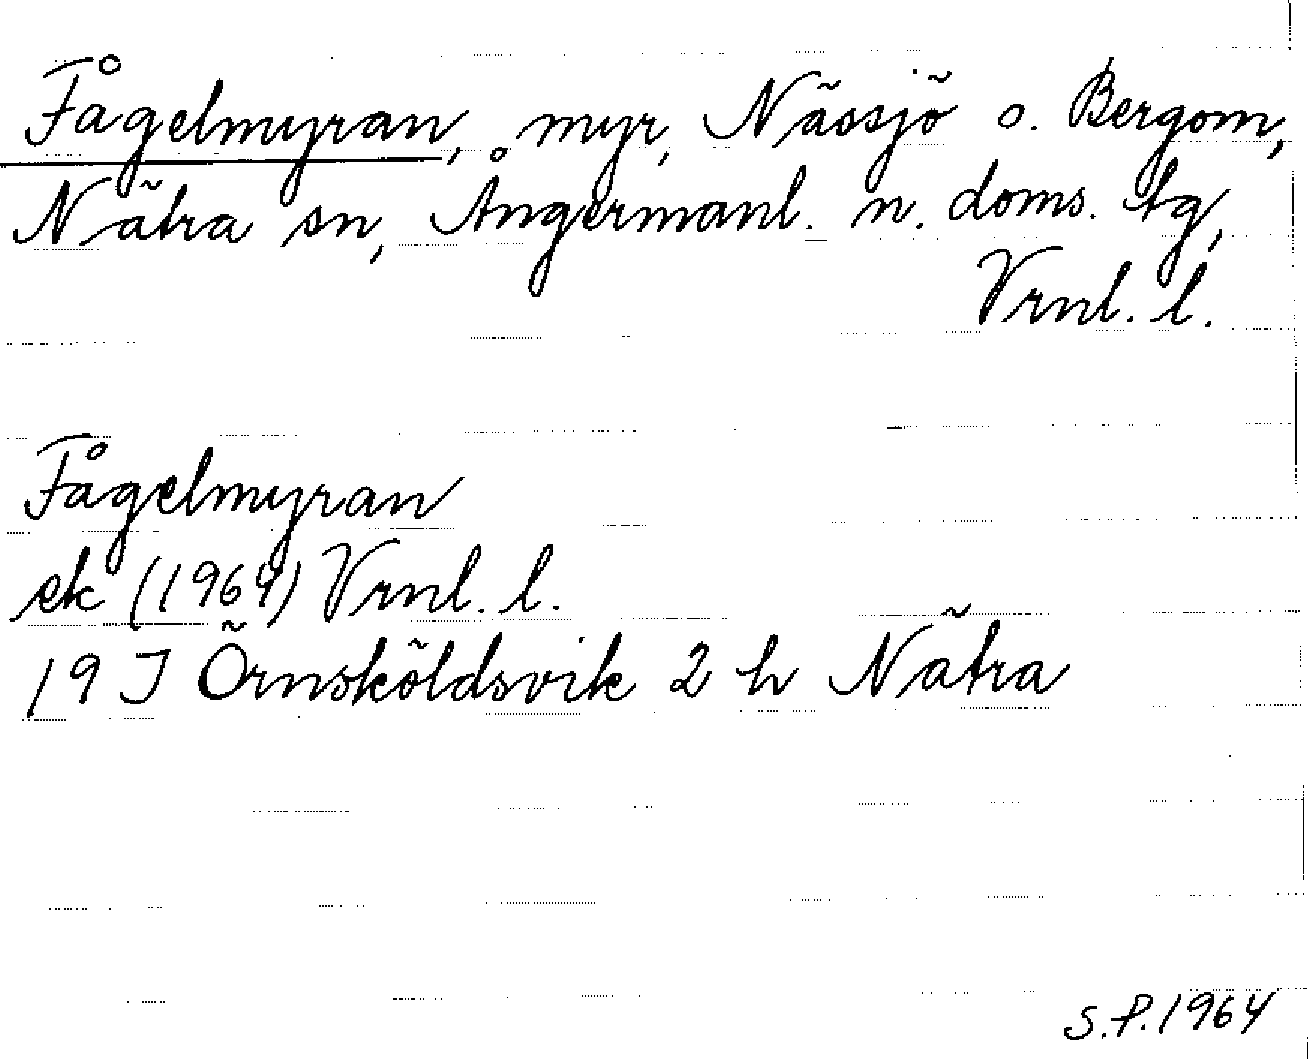 Fågelmyran, myr, Nässjö o. Bergom,
Nätra sn, Ångermanl. n. doms. tg,
Vrnl. l.
Fågelmyran
ek (1964) Vrnl. l.
19 J Örnsköldsvik 2 h Nätra
S.P. 1964